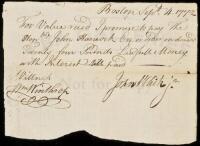 Boston Sept. 4 1772
For Value recd I promise to pay the
Honble John Hancock Esqr or order on demand
Twenty four Pounds Lawfull Money
with Interest till paid
Witness
Wm Winthrop